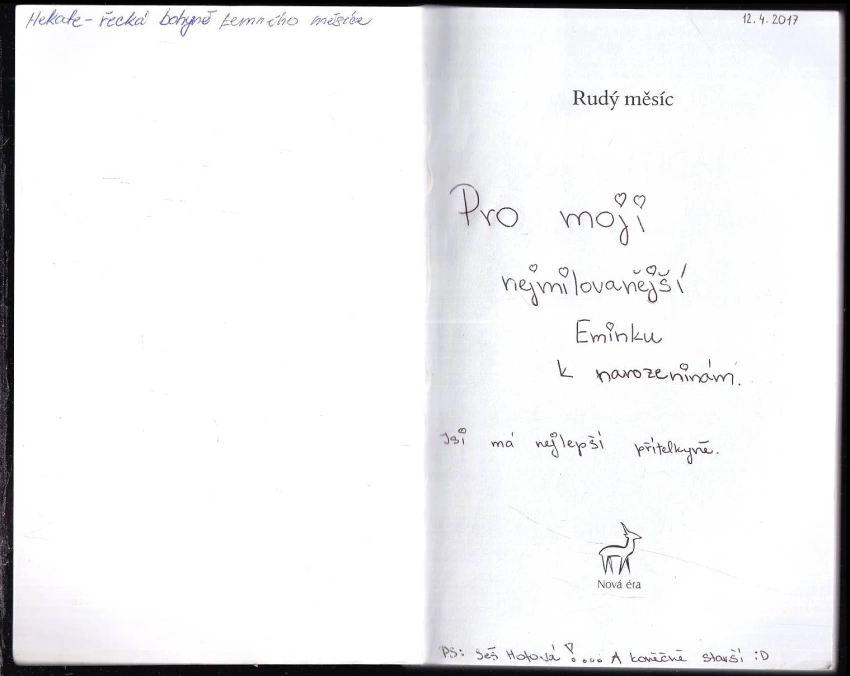 Hekate - řecká bohyně temného měsíce
12. 4. 2017
Rudý měsíc
Pro moji
nejmilovanější
Eminku
k narozeninám.
Jsi má nejlepší přítelkyně.
Nová éra
PS: seš Hotová!.... A konečně starší :D